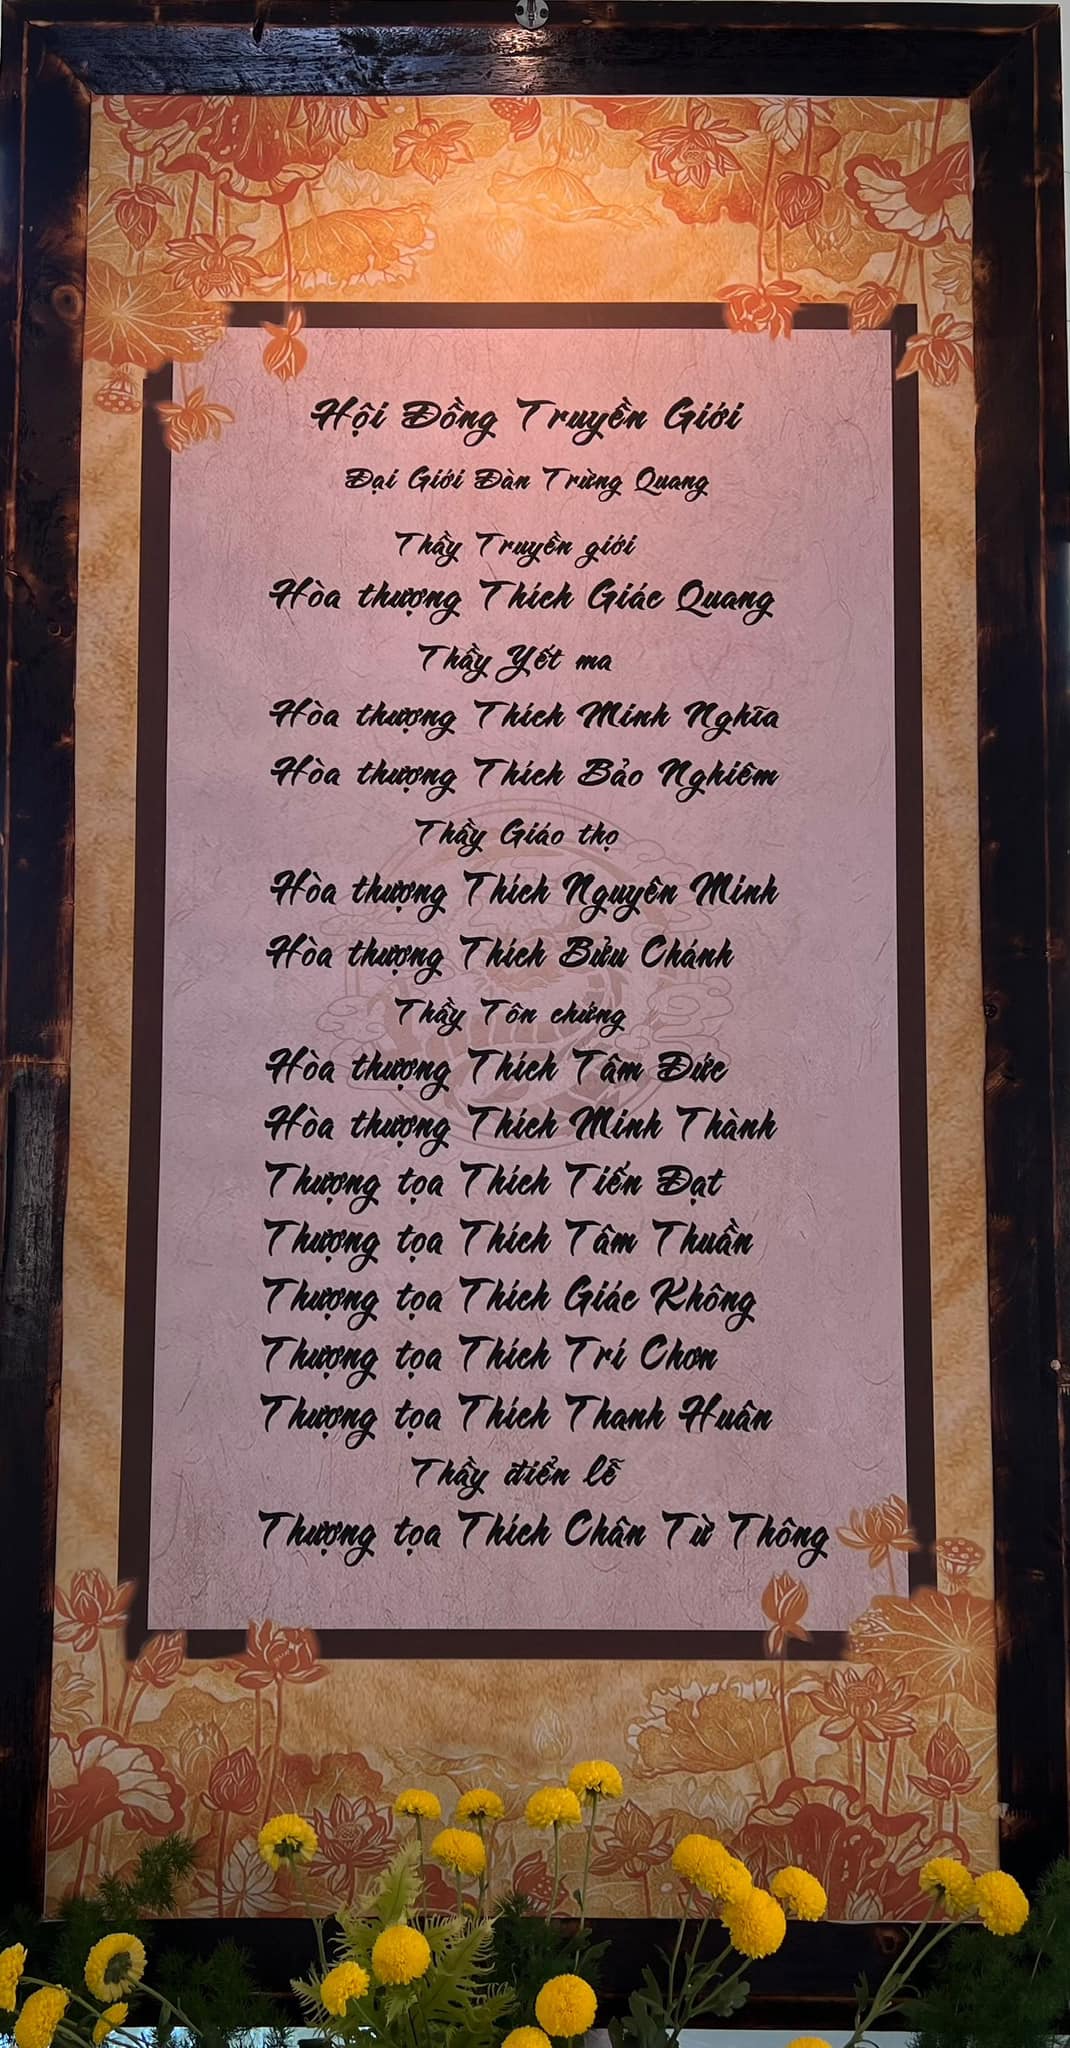 Hội Đồng Truyền Giới
Đại Giới Đàn Trừng Quang
Thầy Truyền giới
Hòa thượng Thích Giác Quang
Thầy Yết ma
Hòa thượng Thích Minh Nghĩa
Hòa thượng Thích Bảo Nghiêm
Thầy Giáo thọ
Hòa thượng Thích Nguyên Minh
Hòa thượng Thích Bửu Chánh
Thầy Tôn chứng
Hòa thượng Thích Tâm Đức
Hòa thượng Thích Minh Thành
Thượng tọa Thích Tiến Đạt
Thượng tọa Thích Tâm Thuần
Thượng tọa Thích Giác Không
Thượng tọa Thích Trí Chơn
Thượng tọa Thích Thanh Huân
Thầy điển lễ
Thượng tọa Thích Chân Từ Thông